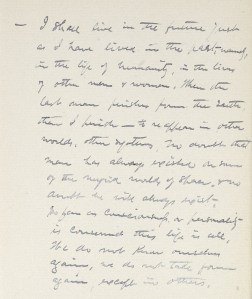 — I shall live in the future just
as I have lived in the past — namely,
in the life of humanity, in the lives
of other men & women. When the
last man perishes from the earth
then I perish — to reappear in other
worlds, other systems. No doubt that
man has always existed in some
of the myriad worlds of space, & no
doubt he will always exist.
So far as consciousness, or personality
is concerned this life is all,
We do not know ourselves
again, we do not take form
again, except in others.